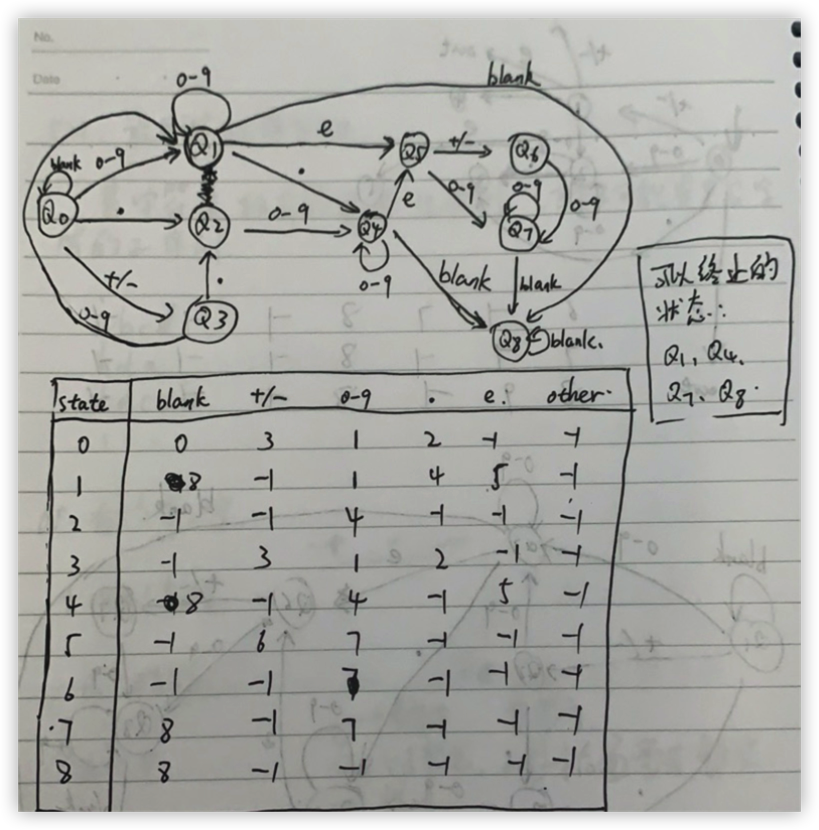 No.
Date
blank
0-9
Q1
e
Q5
+/-
Q6
blank
0-9
.
0-9
0-9
0-9
Q0
.
Q2
0-9
Q4
e
Q7
0-9
+/-
.
0-9
blank
blank
0-9
Q3
Q8
blank.
可以终止的
状态:
Q1、Q4、
Q7、Q8.
state blank +/- 0-9 . e. other.
0 0 3 1 2 -1 -1
1 8 -1 1 4 5 -1
2 -1 -1 4 -1 -1 -1
3 -1 3 1 2 -1 -1
4 8 -1 4 -1 5 -1
5 -1 6 7 -1 -1 -1
6 -1 -1 7 -1 -1 -1
7 8 -1 7 -1 -1 -1
8 8 -1 -1 -1 -1 -1